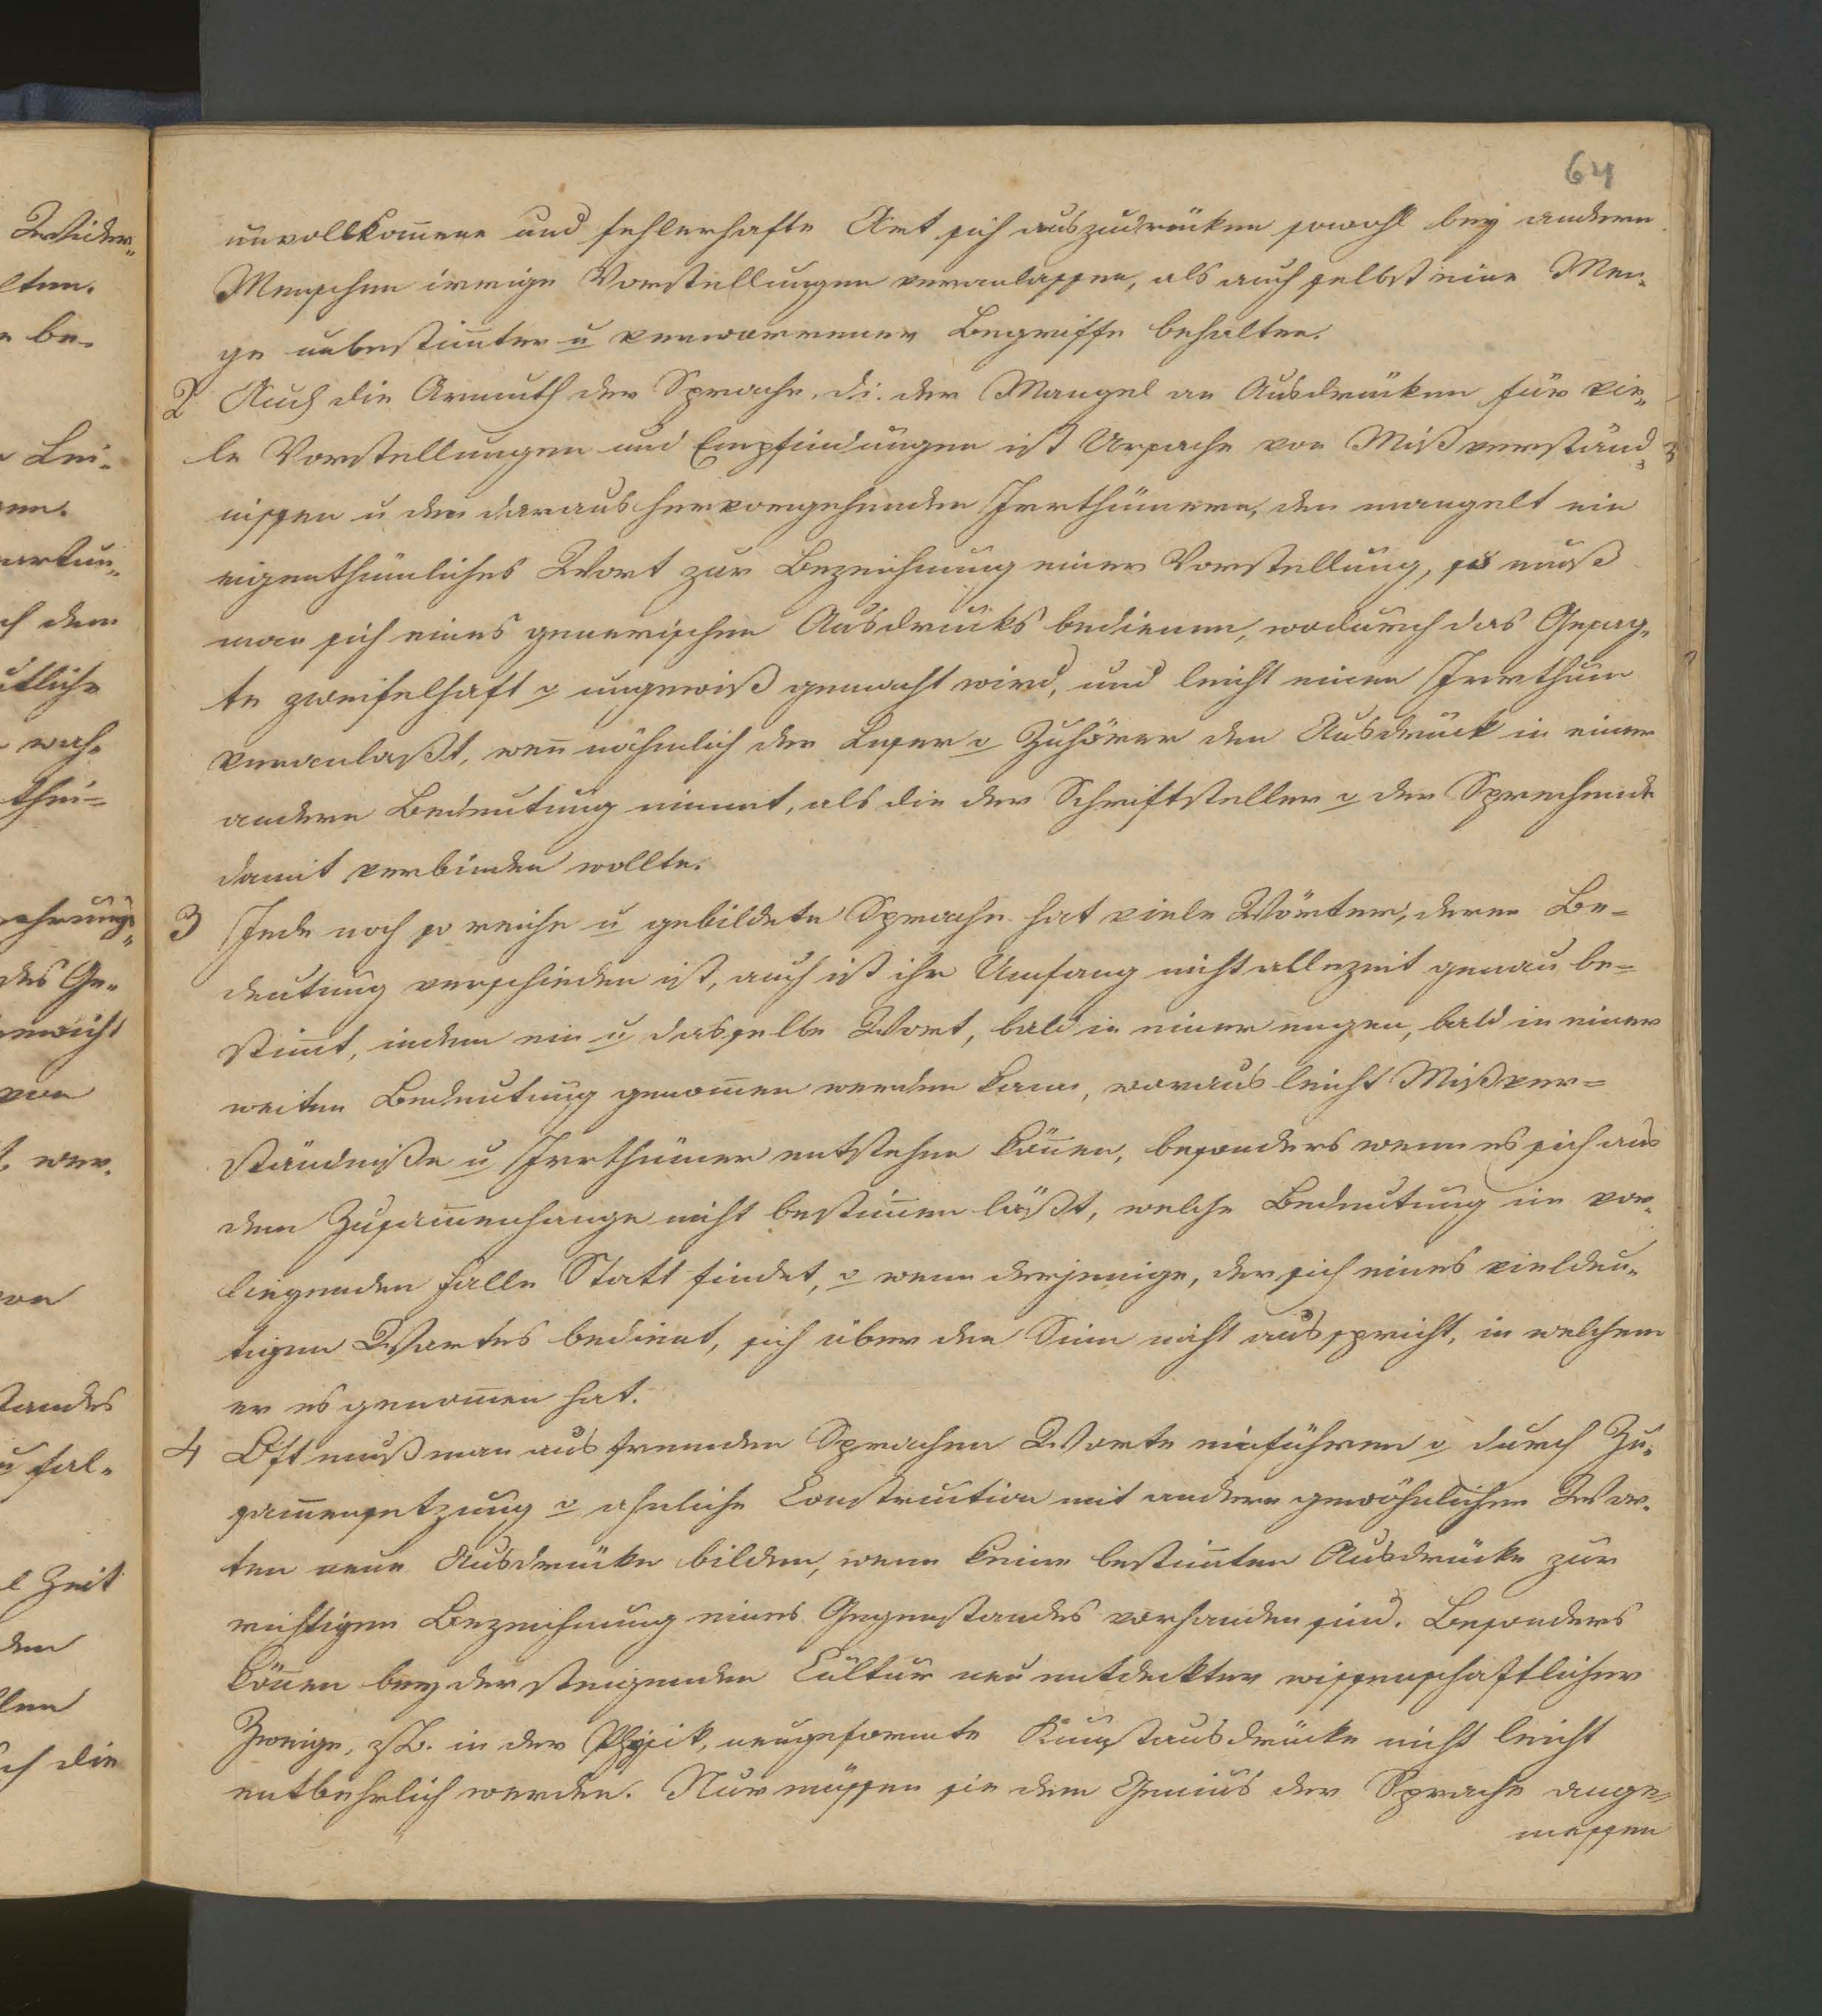 64
unvollkom̄ene und fehlerhafte Art sich auszudrücken sowohl bey andern
Menschen irrige Vorstellungen veranlassen, als auch selbst eine Men-
ge unbestim̄ter u verworrener Begriffe behalten.
2 Auch die Armuth der Sprache, d.i. der Mangel an Ausdrücken für vie-
le Vorstellungen und Empfindungen ist Ursache von Mißverständ-
nissen u den daraus hervorgehenden Irrthümern, den mangelt ein
eigenthümliches Wort zur Bezeichnung einer Vorstellung, so muß
man sich eines generischen Ausdrucks bedienen, wodurch das Gesag-
te zweifelhaft o ungewiß gemacht wird, und leicht einen Irrthum
veranlaßt, wen̄ nähmlich der Leser o Zuhörer den Ausdruck in einer
andern Bedeutung nimmt, als die der Schriftsteller o der Sprechende
damit verbinden wollte.
3 Jede noch so reiche u gebildete Sprache hat viele Wörter, deren Be-
deutung verschieden ist, auch ist ihr Umfang nicht allezeit genau be-
stim̄t, indem ein u dasselbe Wort, bald in einer engen, bald in einer
weiten Bedeutung genom̄en werden kann, woraus leicht Mißver-
ständniße u Irrthümer entstehen kön̄en, besonders wenn es sich aus
dem Zusam̄enhange nicht bestim̄en läßt, welche Bedeutung im vor-
liegenden Falle Statt findet, o wenn derjenige, der sich eines vieldeu-
tigen Wortes bedient, sich über den Sinn nicht ausspricht, in welchem
er es genom̄en hat.
4 Oft muß man aus fremden Sprachen Worte einführen o durch Zu-
sam̄ensetzung o ähnliche Construction mit andern gewöhnlichen Wor-
ten neue Ausdrücke bilden, wenn keine bestim̄ten Ausdrücke zur
richtigen Bezeichnung eines Gegenstandes vorhanden sind. Besonders
kön̄en bey der steigenden Cultur neu entdeckter wissenschaftlicher
Zweige, z.B. in der Physik, neugeformte Kunstausdrücke nicht leicht
entbehrlich werden. Nur müssen sie dem Genius der Sprache ange-
messen